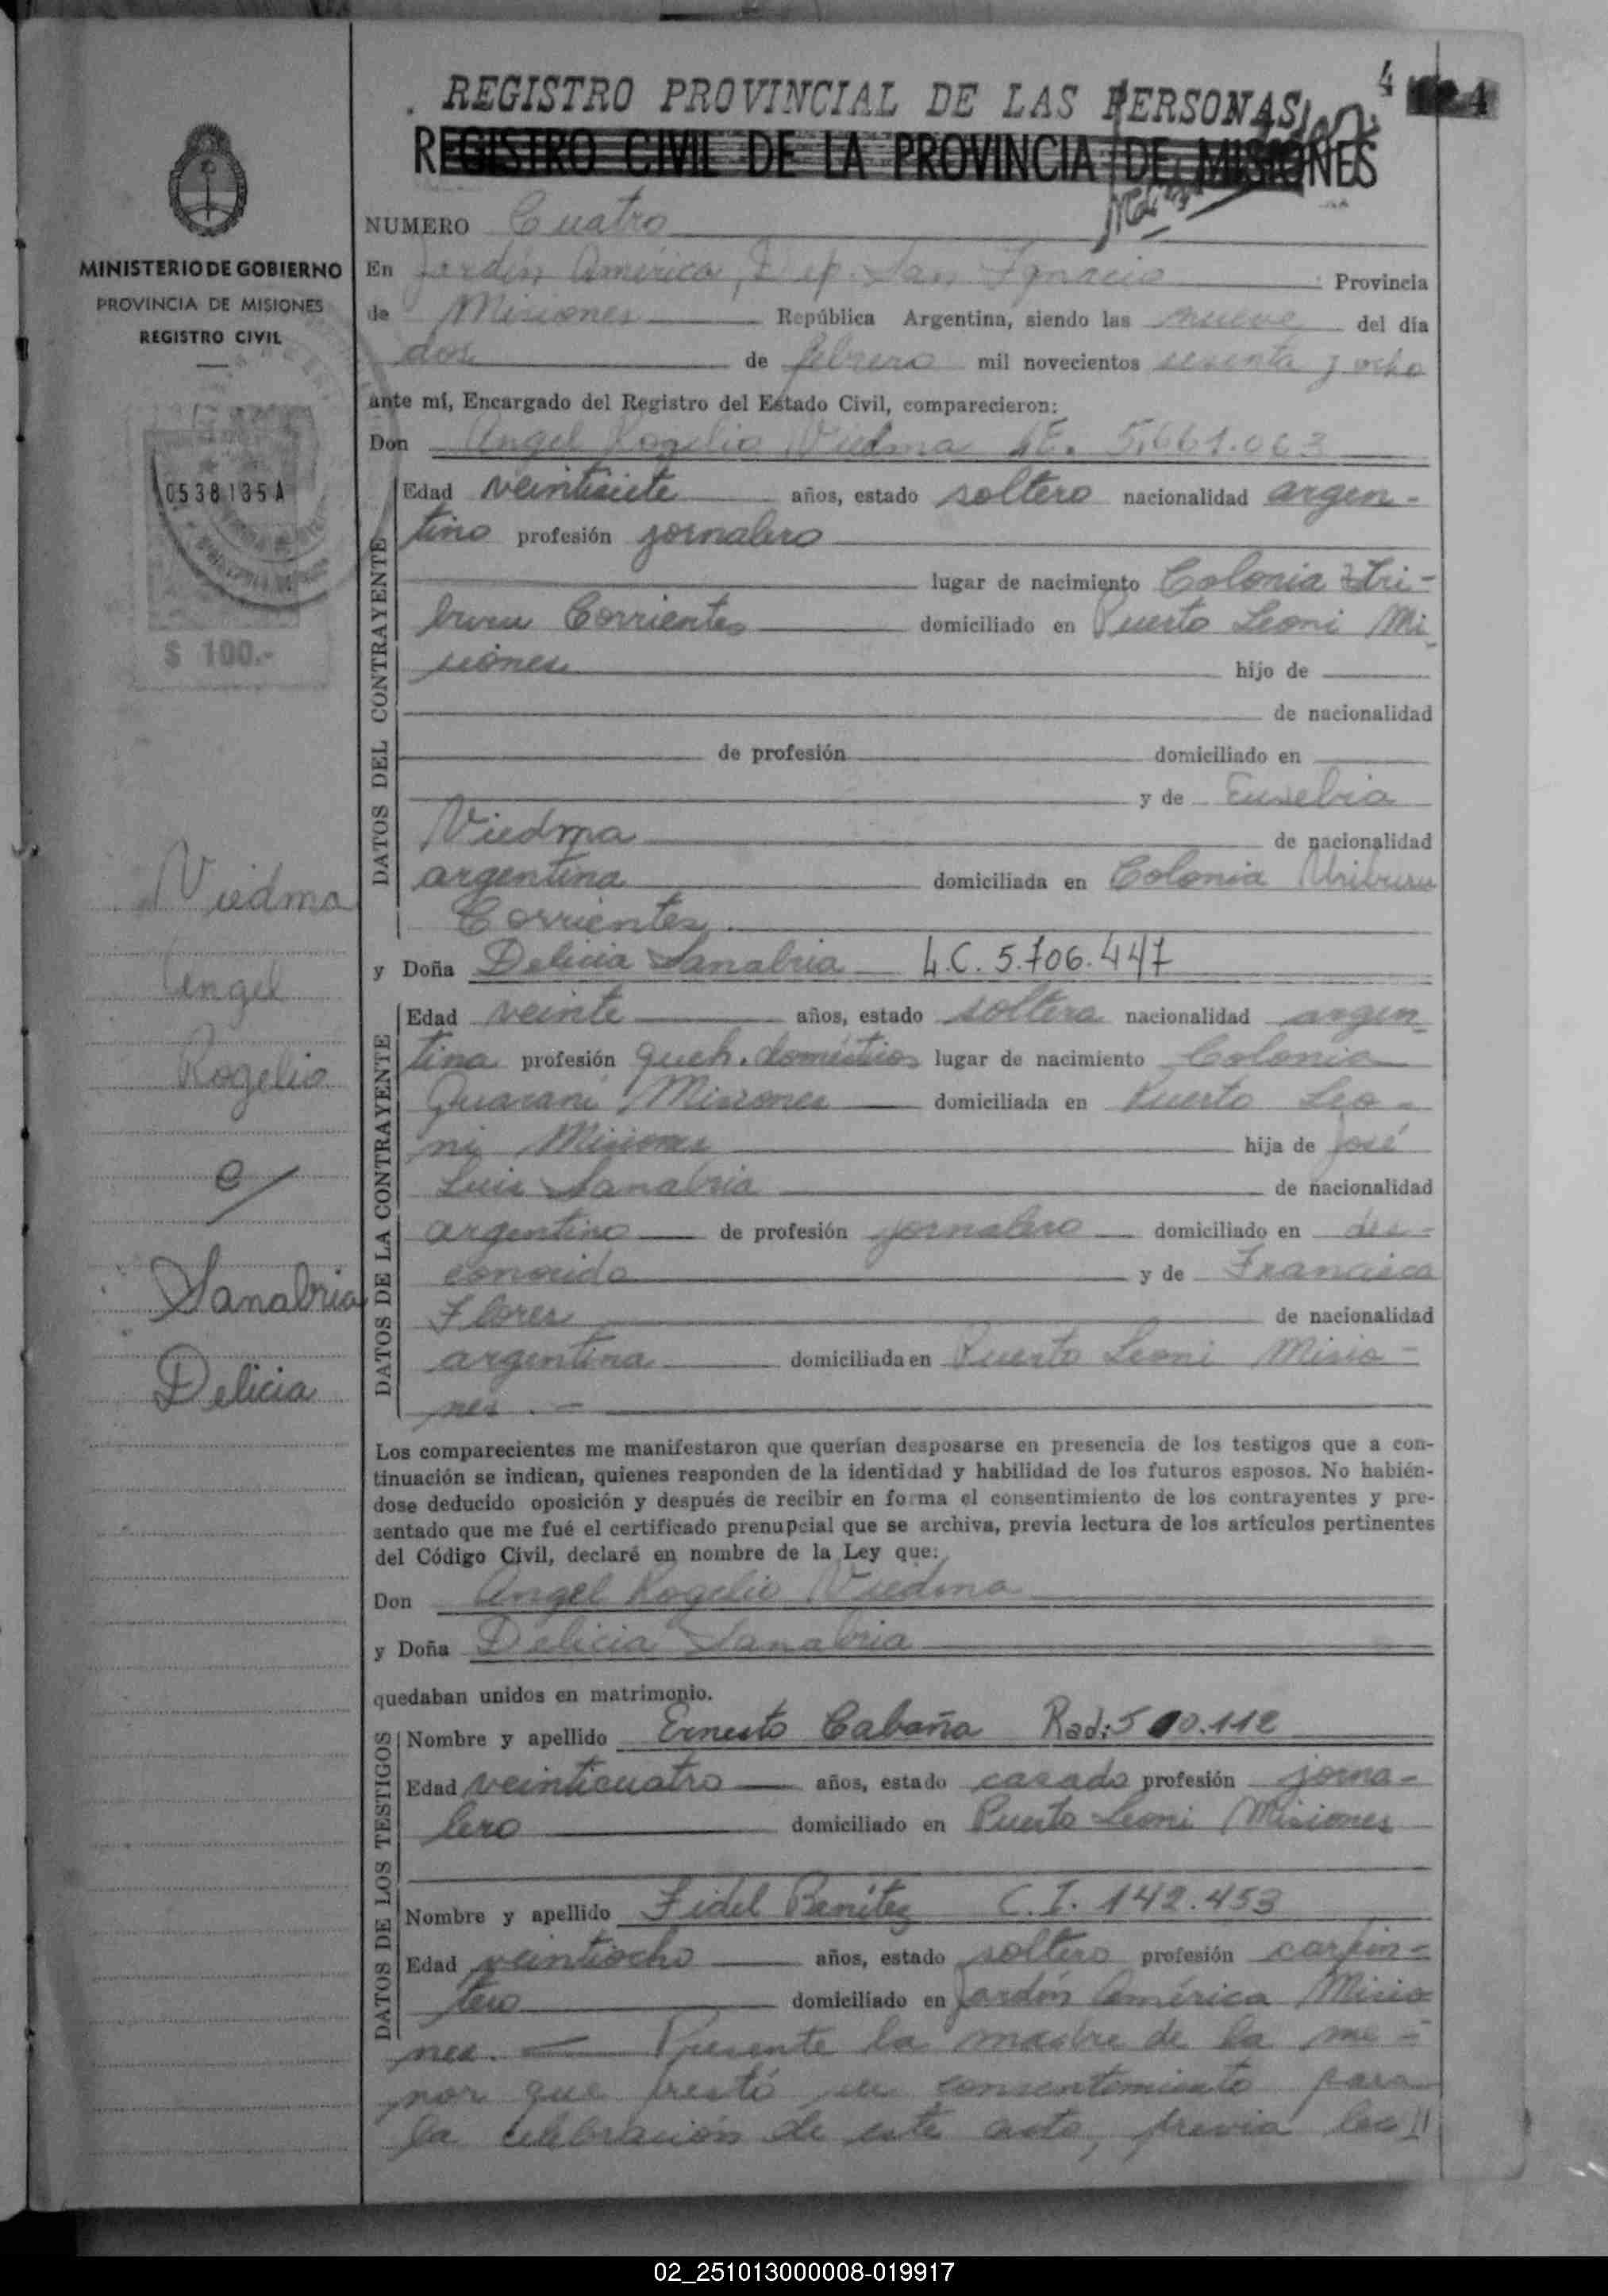 4
REGISTRO PROVINCIAL DE LAS PERSONAS
REGISTRO CIVIL DE LA PROVINCIA DE MISIONES
MINISTERIO DE GOBIERNO
PROVINCIA DE MISIONES
REGISTRO CIVIL
0538135A
$ 100.-
Viedma
Angel
Rogelio
c/
Sanabria
Delicia
NUMERO Cuatro
En Jardín América, Dep. San Ignacio Provincia
de Misiones República Argentina, siendo las nueve del día
dos de febrero mil novecientos sesenta y ocho
ante mí, Encargado del Registro del Estado Civil, comparecieron:
Don Angel Rogelio Viedma LE. 5.661.063
DATOS DEL CONTRAYENTE
Edad veintisiete años, estado soltero nacionalidad argen-
tino profesión jornalero
lugar de nacimiento Colonia Uri-
buru Corrientes domiciliado en Puerto Leoni Mi
siones hijo de
de nacionalidad
de profesión domiciliado en
y de Eusebia
Viedma de nacionalidad
argentina domiciliada en Colonia Uriburu
Corrientes.
y Doña Delicia Sanabria L.C. 5.706.447
DATOS DE LA CONTRAYENTE
Edad veinte años, estado soltera nacionalidad argen-
tina profesión queh. domésticos lugar de nacimiento Colonia
Guaraní Misiones domiciliada en Puerto Leo-
ni Misiones hija de José
Luis Sanabria de nacionalidad
argentino de profesión jornalero domiciliado en des-
conocido y de Francisca
Flores de nacionalidad
argentina domiciliada en Puerto Leoni Misio-
nes.-
Los comparecientes me manifestaron que querían desposarse en presencia de los testigos que a con-
tinuación se indican, quienes responden de la identidad y habilidad de los futuros esposos. No habién-
dose deducido oposición y después de recibir en forma el consentimiento de los contrayentes y pre-
sentado que me fué el certificado prenupcial que se archiva, previa lectura de los artículos pertinentes
del Código Civil, declaré en nombre de la Ley que:
Don Angel Rogelio Viedma
y Doña Delicia Sanabria
quedaban unidos en matrimonio.
DATOS DE LOS TESTIGOS
Nombre y apellido Ernesto Cabaña Rad: 500.112
Edad veinticuatro años, estado casado profesión jorna-
lero domiciliado en Puerto Leoni Misiones
Nombre y apellido Fidel Benítez C.I. 142.453
Edad veintiocho años, estado soltero profesión carpin-
tero domiciliado en Jardín América Misio
nes. — Presente la madre de la me-
nor que prestó su consentimiento para
la celebración de este acto, previa lec//
02_251013000008-019917